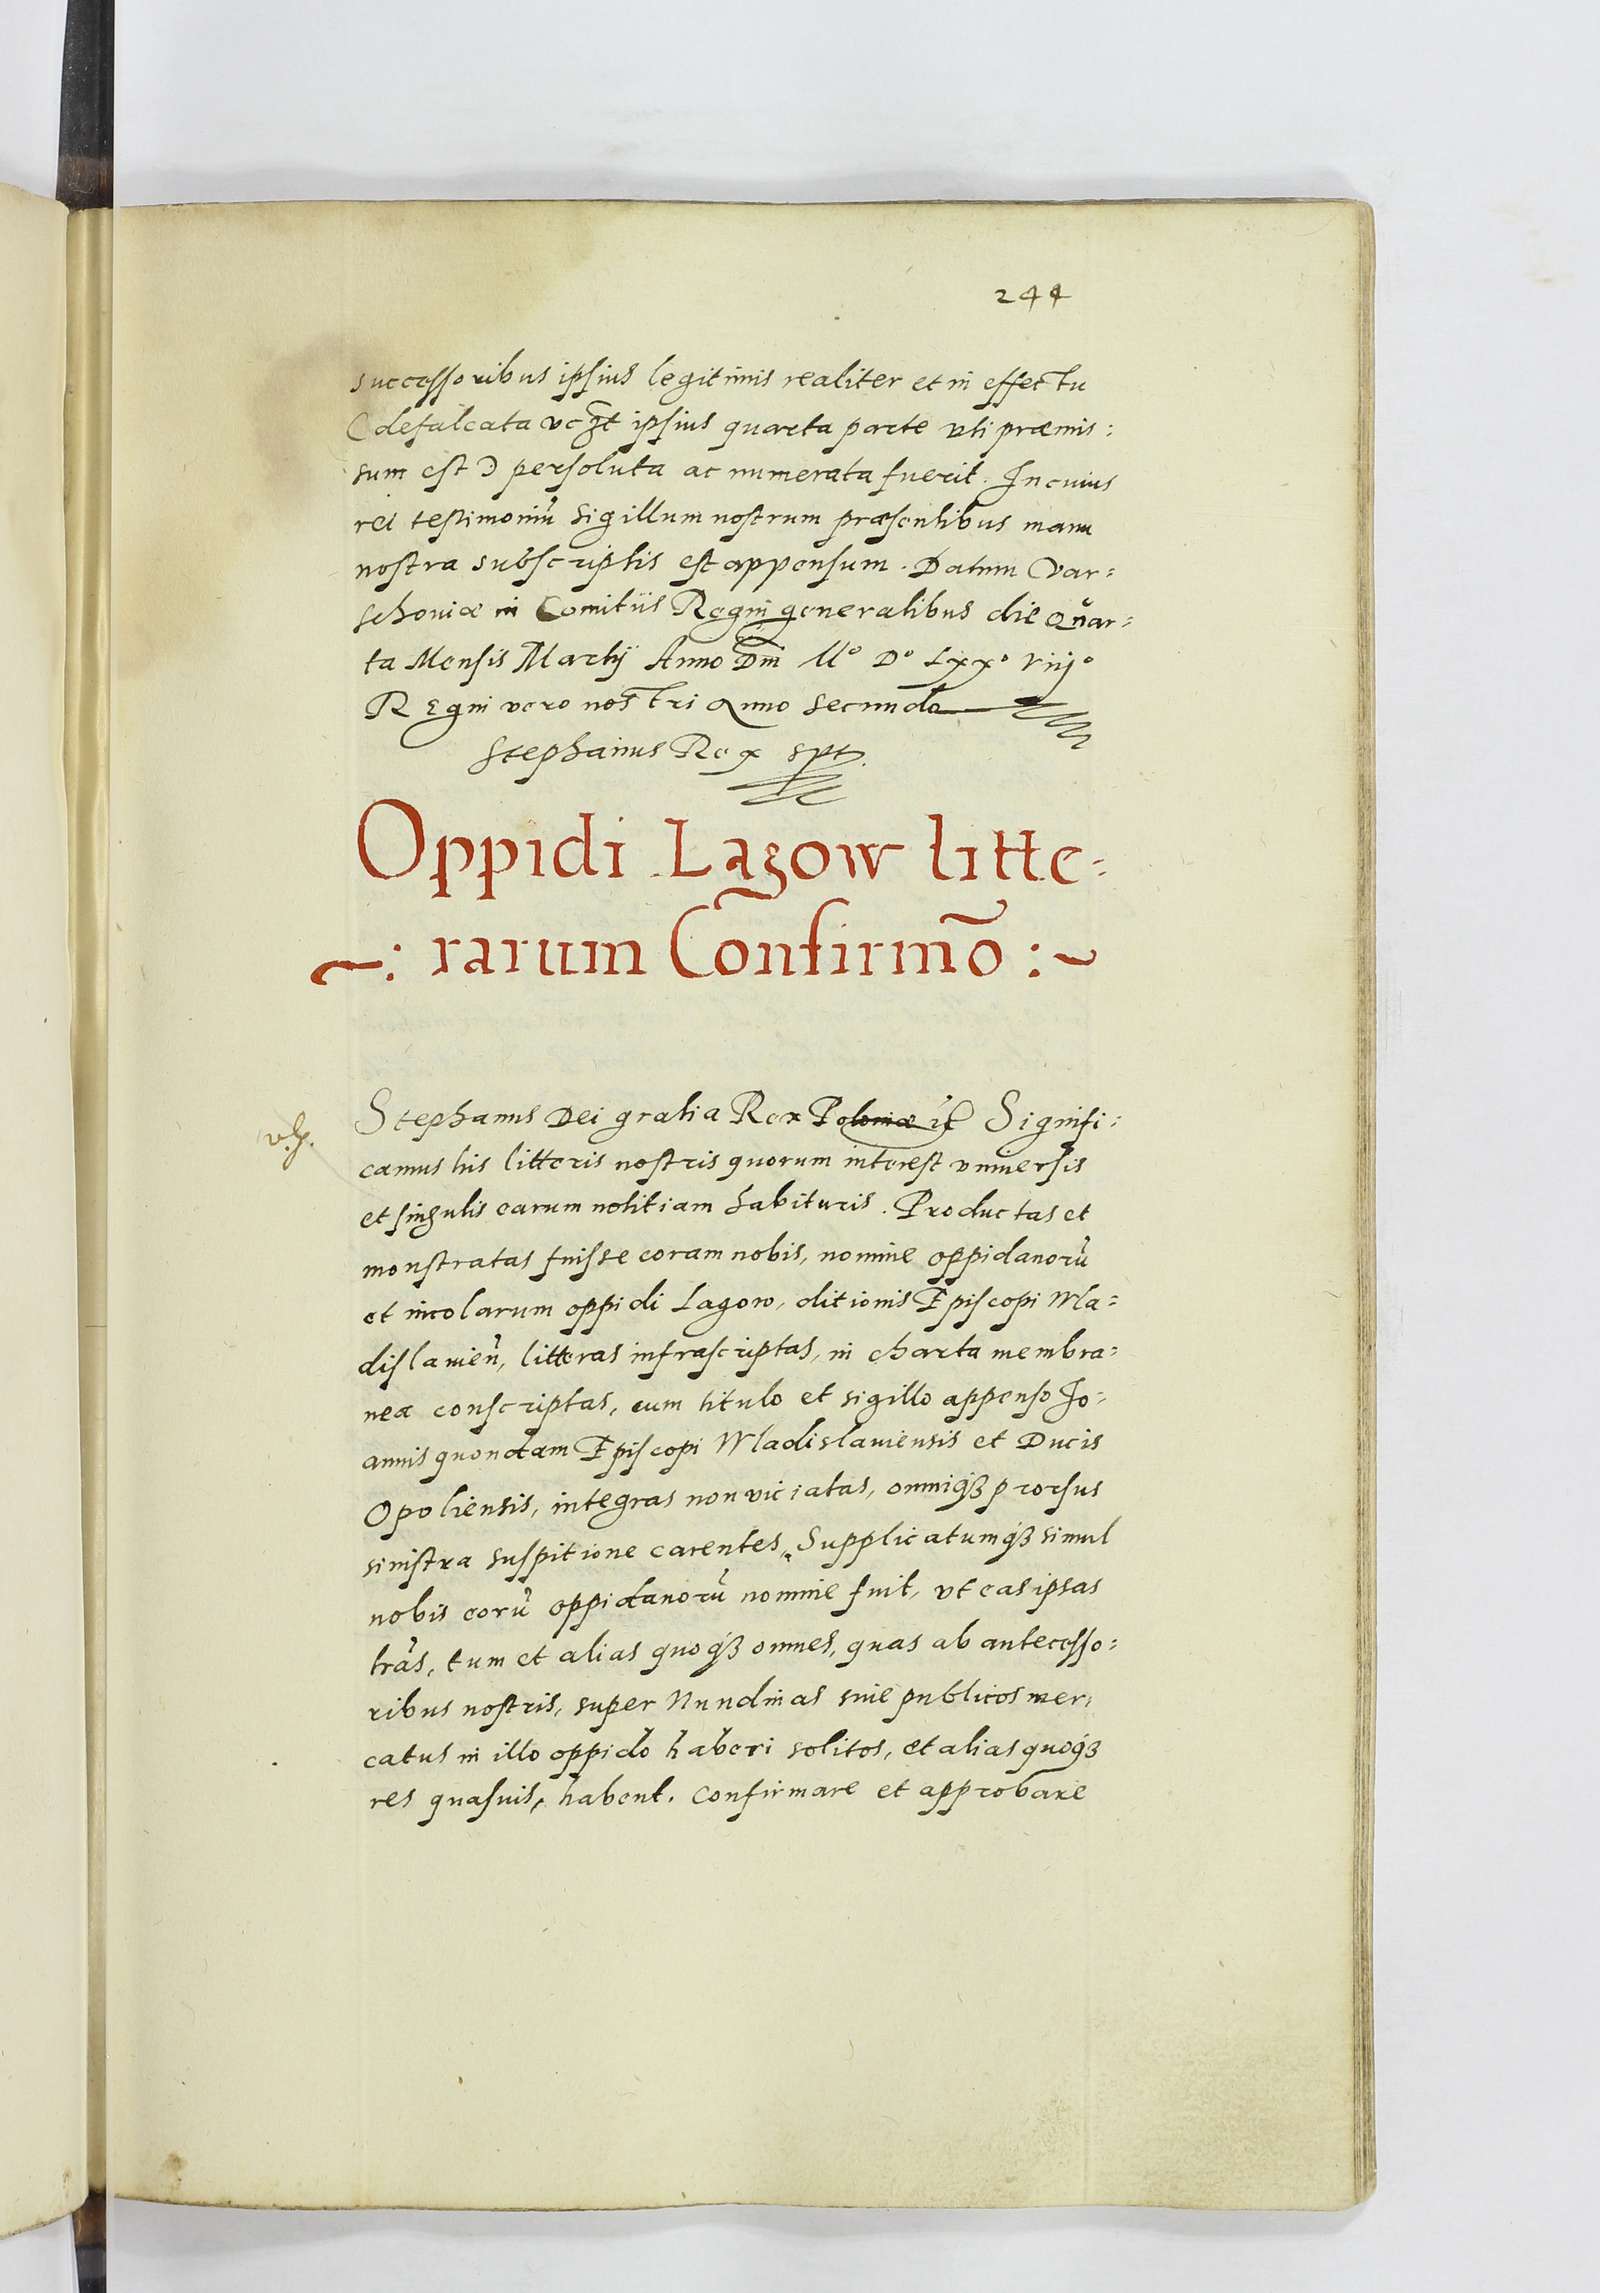 244
successoribus ipsius legitimis realiter et in effectu
(defalcata vczt ipsius quarta parte uti præmis:
sum est) persoluta ac numerata fuerit. In cuius
rei testimoniũ sigillum nostrum præsentibus manu
nostra subscriptis est appensum. Datum Var=
schoviæ in Comitiis Regni generalibus die Quar=
ta Mensis Martij Anno Dni Mº Dº Lxxº viijº
Regni vero nostri Anno secundo
Stephanus Rex spt.
Oppidi Lagow litte=
~: rarum Confirmõ :~
Stephanus Dei gratia Rex Poloniæ ic Signifi:
camus his litteris nostris quorum interest vniuersis
et singulis earum notitiam habituris. Productas et
monstratas fuisse coram nobis, nomine oppidanorũ
et incolarum oppidi Lagow, ditionis Episcopi Wla=
dislauieñ, litteras infrascriptas, in charta membra=
nea conscriptas, cum titulo et sigillo appenso Jo=
annis quondam Episcopi Wladislauiensis et Ducis
Opoliensis, integras non viciatas, omniq3 prorsus
sinistra suspitione carentes, Supplicatumq3 simul
nobis eorũ oppidanorũ nomine fuit, vt eas ipsas
lrãs, tum et alias quoq3 omnes, quas ab antecesso:
ribus nostris, super Nundinas siue publicos mer,
catus in illo oppido haberi solitos, et alias quoq3
res quasuis, habent. confirmare et approbare